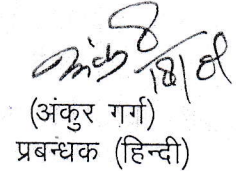 अंकुर
18/01
(अंकुर गर्ग)
प्रबन्धक (हिन्दी)